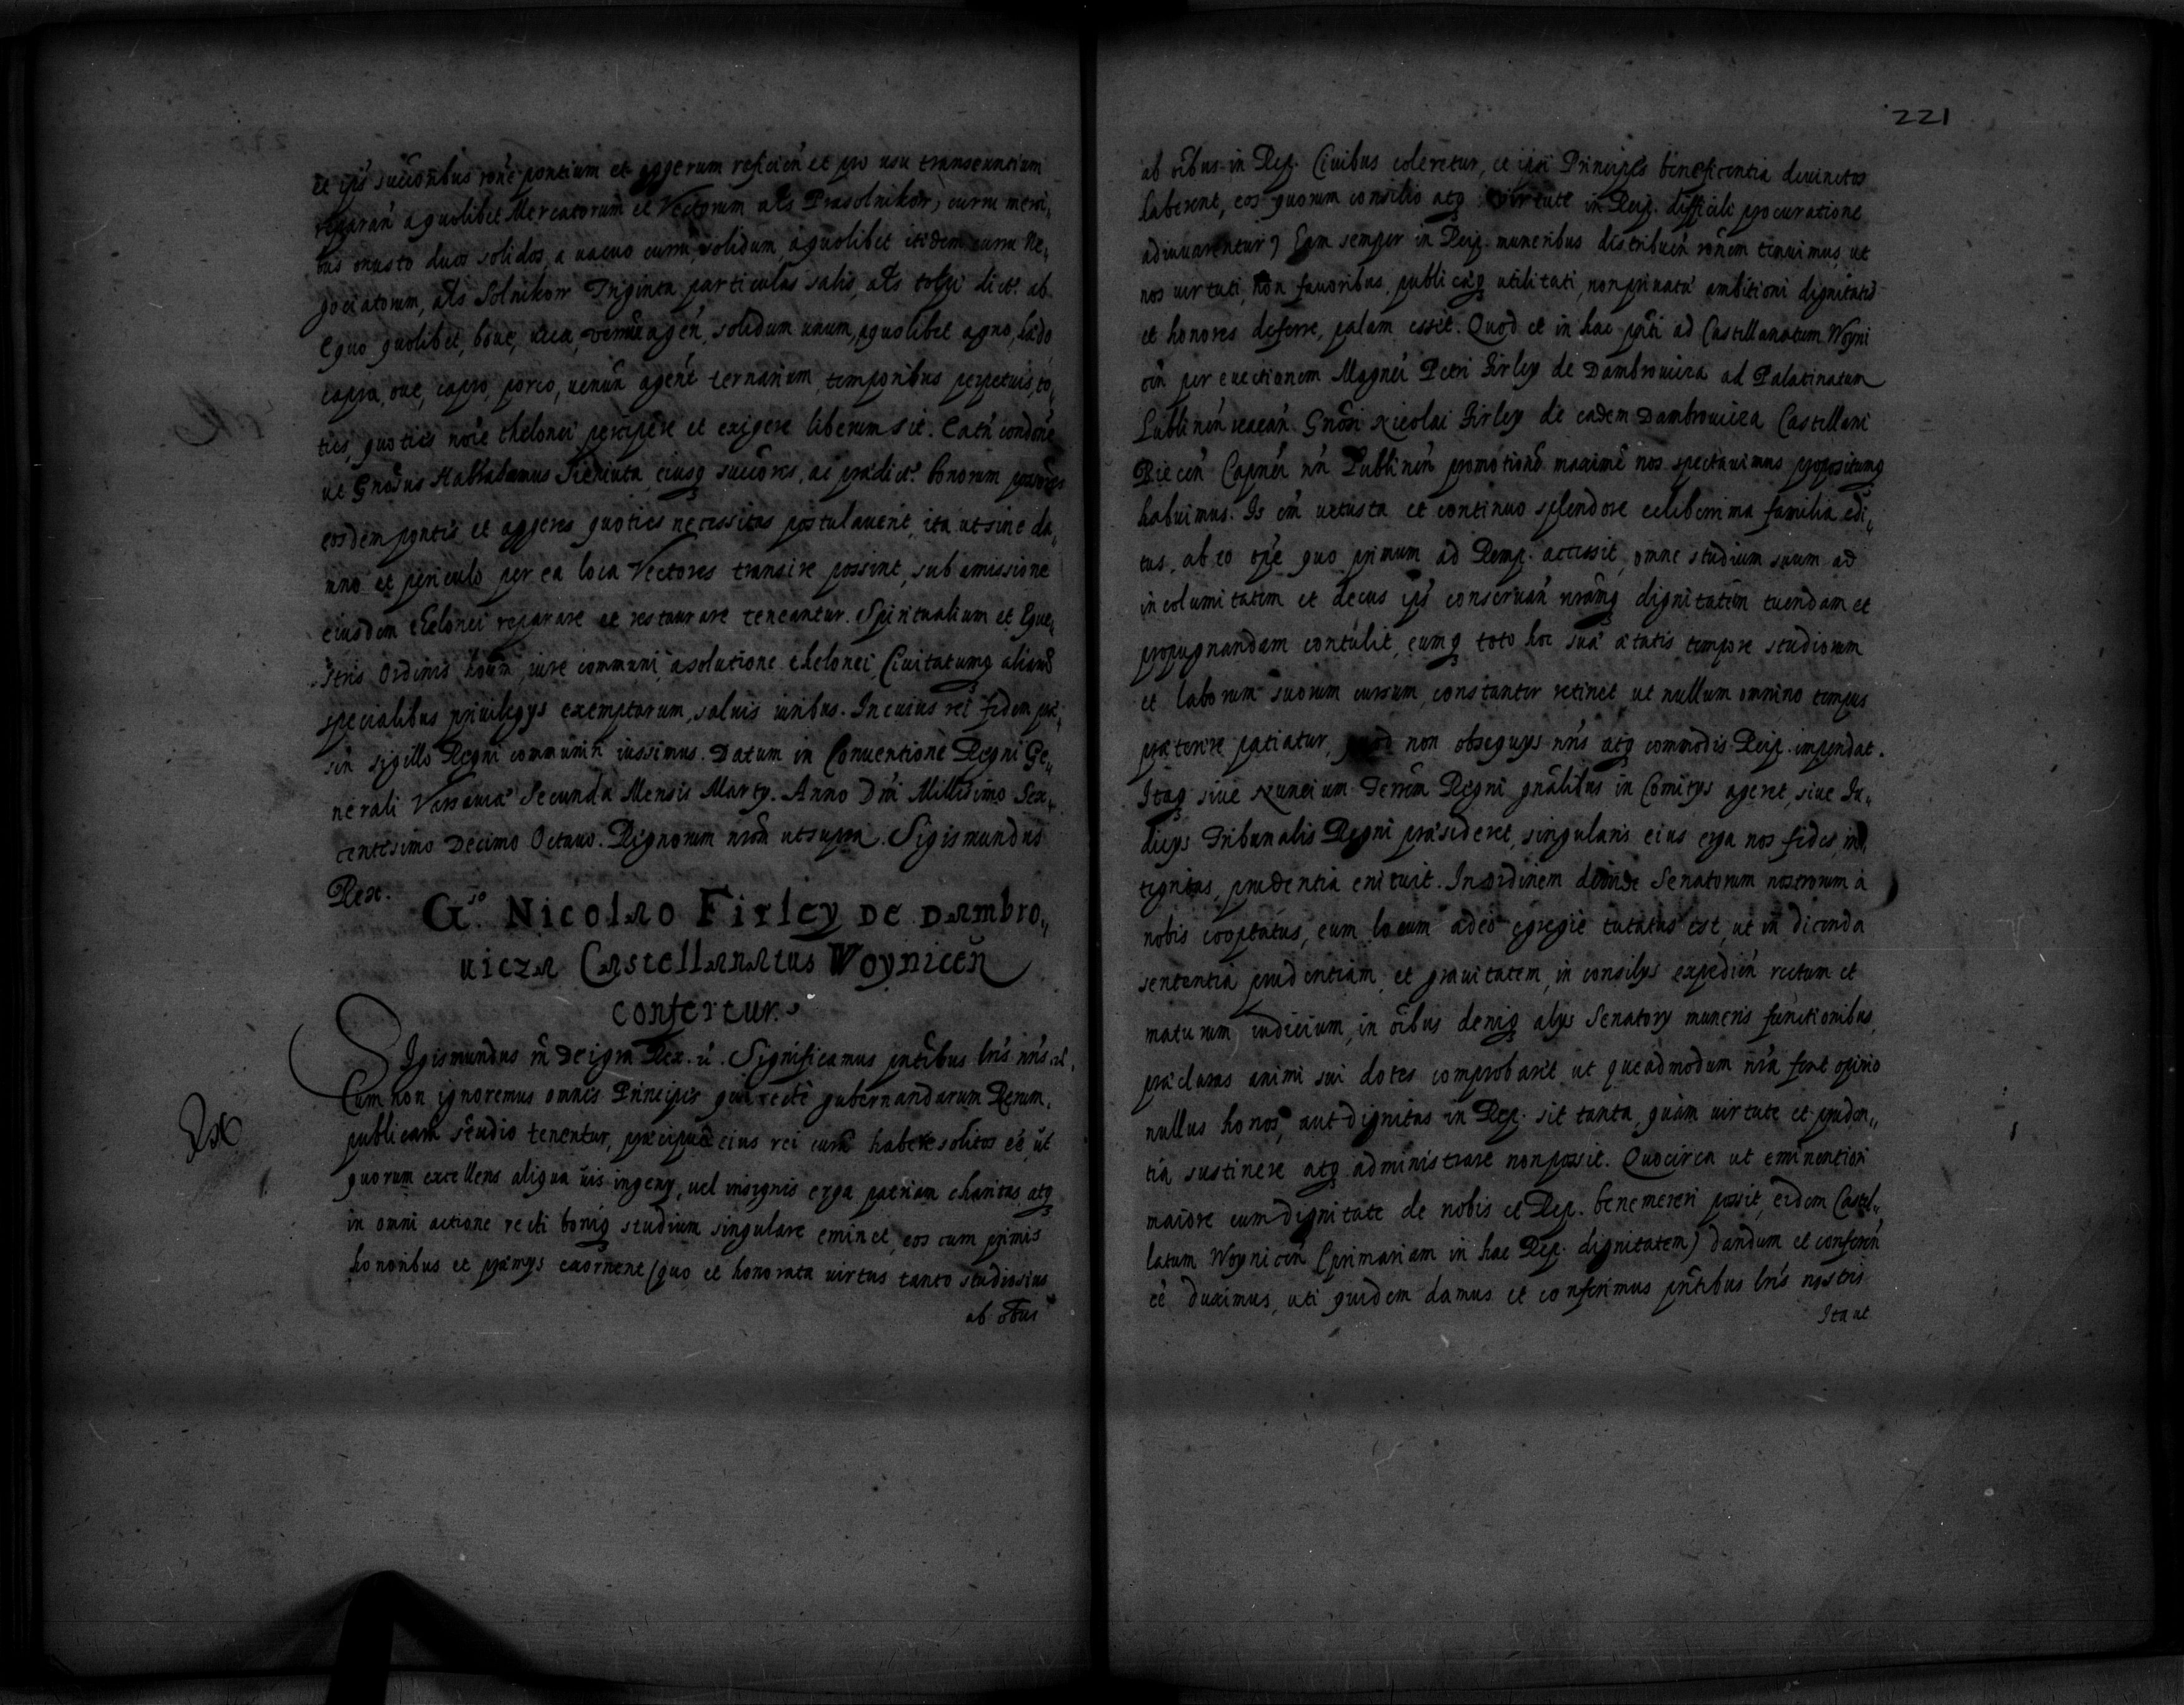 et ips succoribus rone pontium et aggerum reficien et pro usu transeuntium
reparan a quolibet Mercatorum et Vectorum als Prasolnikow, curru merci„
bus onusto duos solidos, a vacuo curru, solidum, a quolibet itidem curru Ne„
gociatorum, als Solnikow Triginta particulas salis, als tolpi dict. ab
equo quolibet, boue, vacca, agen, solidum unum, a quolibet agno, hædo
capra, oue, capro, porco, uenun agent ternarium, temporibus perpetuis, to„
ties, quoties noie thelonei percipere et exigere liberum sit. Eatn condone
ut Gnosus Habradamus Sieniuta eiusq succores, ac prædict. bonorum
eosdem pontes et aggeres quoties necessitas postulauerit, ita ut sine da„
mno et periculo per ea loca Vectores transire possint, sub amissione
eiusdem thelonei reparare et restaurare teneantur. Spiritualium et Eque„
stris Ordinis houm, iure communi, a solutione thelonei, Ciuitatumq aliarum
specialibus priuilegys exemptarum, saluis iuribus. In cuius rei fidem præ„
sen sigillo Regni communiri iussimus. Datum in Conuentione Regni Ge„
nerali Varsauiæ Secunda Mensis Marty. Anno Dni Millesimo Sex„
centesimo Decimo Octauo. Regnorum nrom ut supra. Sigismundus
Rex.
G.so Nicolao Firley de Dambro„
uicza Castellanatus Woynicen̄
confertur.
Sigismundus 3 Dei gra Rex. Significamus pntibus lris nris
Cum non ignoremus omnes Principes qui recte gubernandarum Rerum„
publicarum studio tenentur, præcipuam eius rei curam habere solitos eē, ut
quorum excellens aliqua uis ingeny, uel insignis erga patriam charitas atq
in omni actione recti boniq studium singulare eminet, eos cum primis
honoribus et præmys exornent (quo et honorata uirtus tanto studiosius
ab oībus
221
ab oībus in Rep. Ciuibus coleretur, et ipsi Principes beneficentia deuinctos
haberent, eos quorum consilio atq uirtute in Reip. difficili procuratione
adiuuarentur) Eam semper in Reip. muneribus distribuen ronem tenuimus, ut
nos uirtuti, non fauoribus, publicæq utilitati, non priuatæ ambitioni dignitates
et honores deferre, palam esset. Quod et in hac pnti ad Castellanatum Woyni
cen per euectionem Magnci Petri Firley de Dambrouicza ad Palatinatum
Lublinen uacan Gnosi Nicolai Firley de eadem Dambrouicza Castellani
Biecen Capnei nri Lublinen promotione maxime nos spectauimus propositumq
habuimus. Is em uetusta et continuo splendore celeberrima familia edi„
tus, ab eo tpre quo primum ad Remp. accessit, omne studium suum ad
incolumitatem et decus ips conseruan nramq dignitatem tuendam et
propugnandam contulit, eumq toto hoc suæ ætatis tempore studiorum
et laborum suorum cursum, constanter retinet, ut nullum omnino tempus
præterire patiatur, quod non obsequys nris atq commodis Reip. impendat.
Itaq siue Nuncium Terrem Regni gnalibus in Comitys ageret, siue Iu„
dicys Tribunalis Regni præsideret, singularis eius erga nos fides, in„
tegritas, prudentia enituit. In ordinem deinde Senatorum nostrorum à
nobis cooptatus, eum locum adeo egregie tutatus est, ut in dicenda
sententia prudentiam, et grauitatem, in consilys expedien rectum et
maturum iudicium, in oībus deniq alys Senatory muneris functionibus,
præclaras animi sui dotes comprobarit, ut queadmodum nra fert opinio
nullus honos, aut dignitas in Rep. sit tanta, quàm uirtute et pruden„
tia sustinere atq administrare non possit. Quocirca ut eminentiori
maiore cum dignitate de nobis et Rep. benemereri possit, eidem Castel„
latum Woynicen (primariam in hac Rep. dignitatem) dandum et conferen
eē duximus, uti quidem damus et conferimus pntibus lris nostris
Ita ut